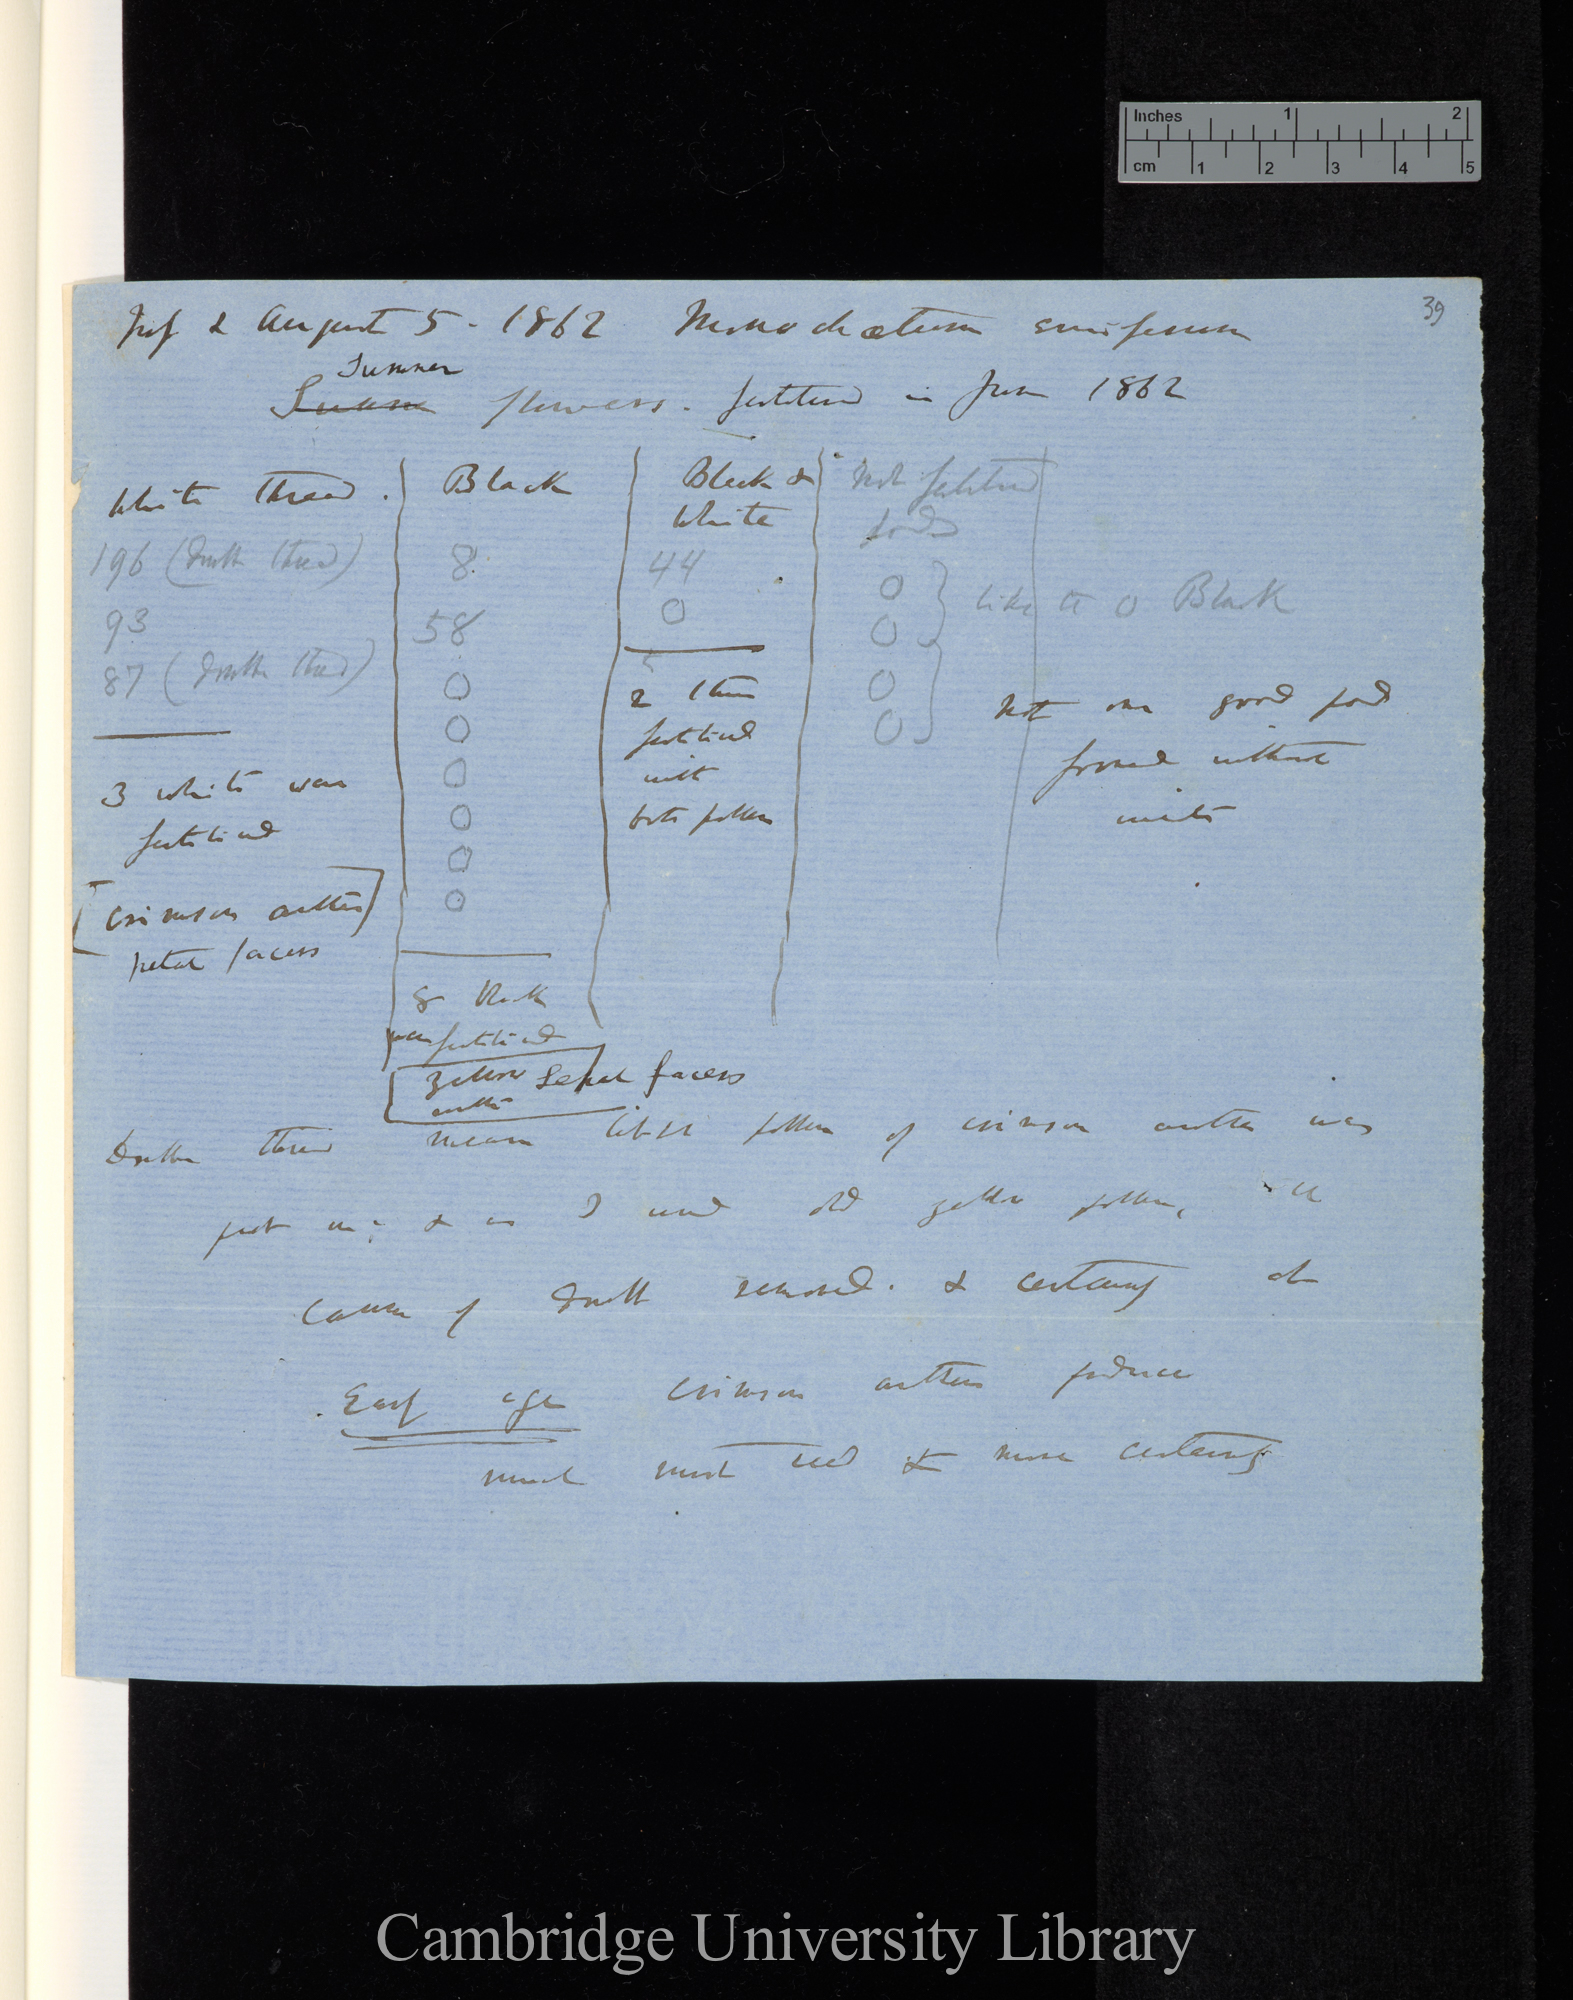 Inches 1 2
cm 1 2 3 4 5
39
July & August 5 - 1862 Monochætum ensiferum
Summer
flowers. fertilised in June 1862
White thread. Black Black & White Not fertilised pods
196 (doubtful thread) 8 44 0
93 58 0 0 like the 0 Black
87 (doubtful thread) 0 0
0 0
0
0
0
0
2 then fertilised with both pollen
not one good pod formed without insects
3 white were fertilised
[Crimson anther]
petal facers
8 Black
were fertilised
[Yellow anther] Sepal facers
Doubtful thread means little pollen of crimson anther was
put on; & as I used old yellow pollen, all
cause of doubt removed. & certainly at
Early age crimson anthers produce
much most seed & more certainly
Cambridge University Library